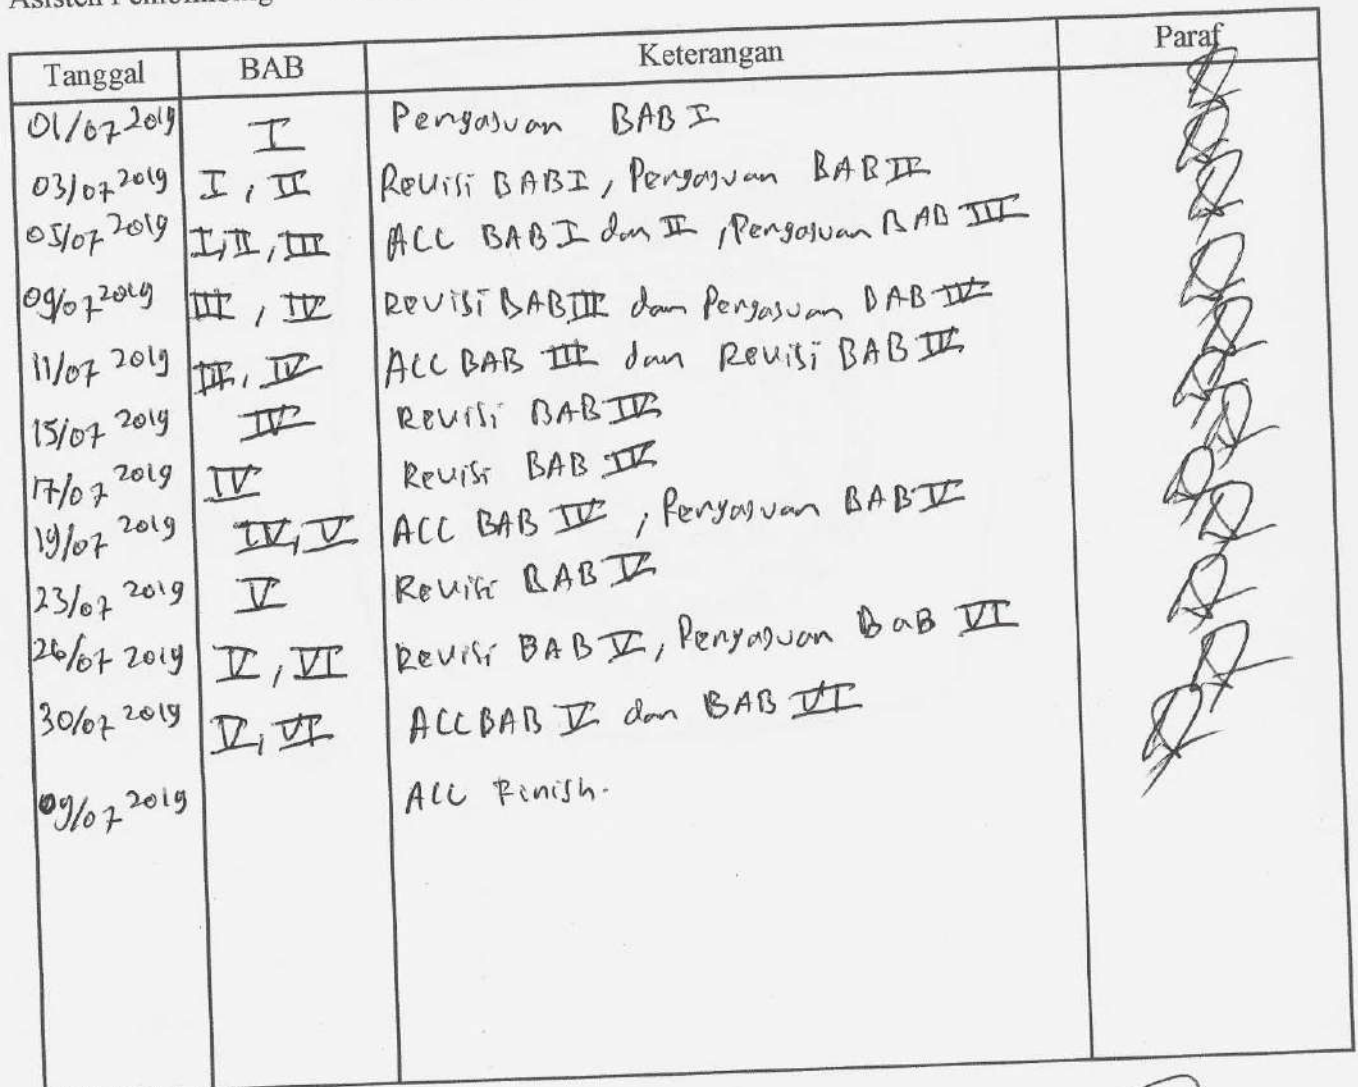 Asisten Pembimbing
Tanggal BAB Keterangan Paraf
01/07 2019 I Pengajuan BAB I
03/07 2019 I, II Revisi BAB I, Pengajuan BAB II
05/07 2019 I, II, III ACC BAB I dan II, Pengajuan BAB III
09/07 2019 III, IV Revisi BAB III dan Pengajuan BAB IV
11/07 2019 III, IV ACC BAB III dan Revisi BAB IV
15/07 2019 IV Revisi BAB IV
17/07 2019 IV Revisi BAB IV
19/07 2019 IV, V ACC BAB IV, Pengajuan BAB V
23/07 2019 V Revisi BAB V
26/07 2019 V, VI Revisi BAB V, Pengajuan BaB VI
30/07 2019 V, VI ACC BAB V dan BAB VI
09/07 2019 ACC Finish.